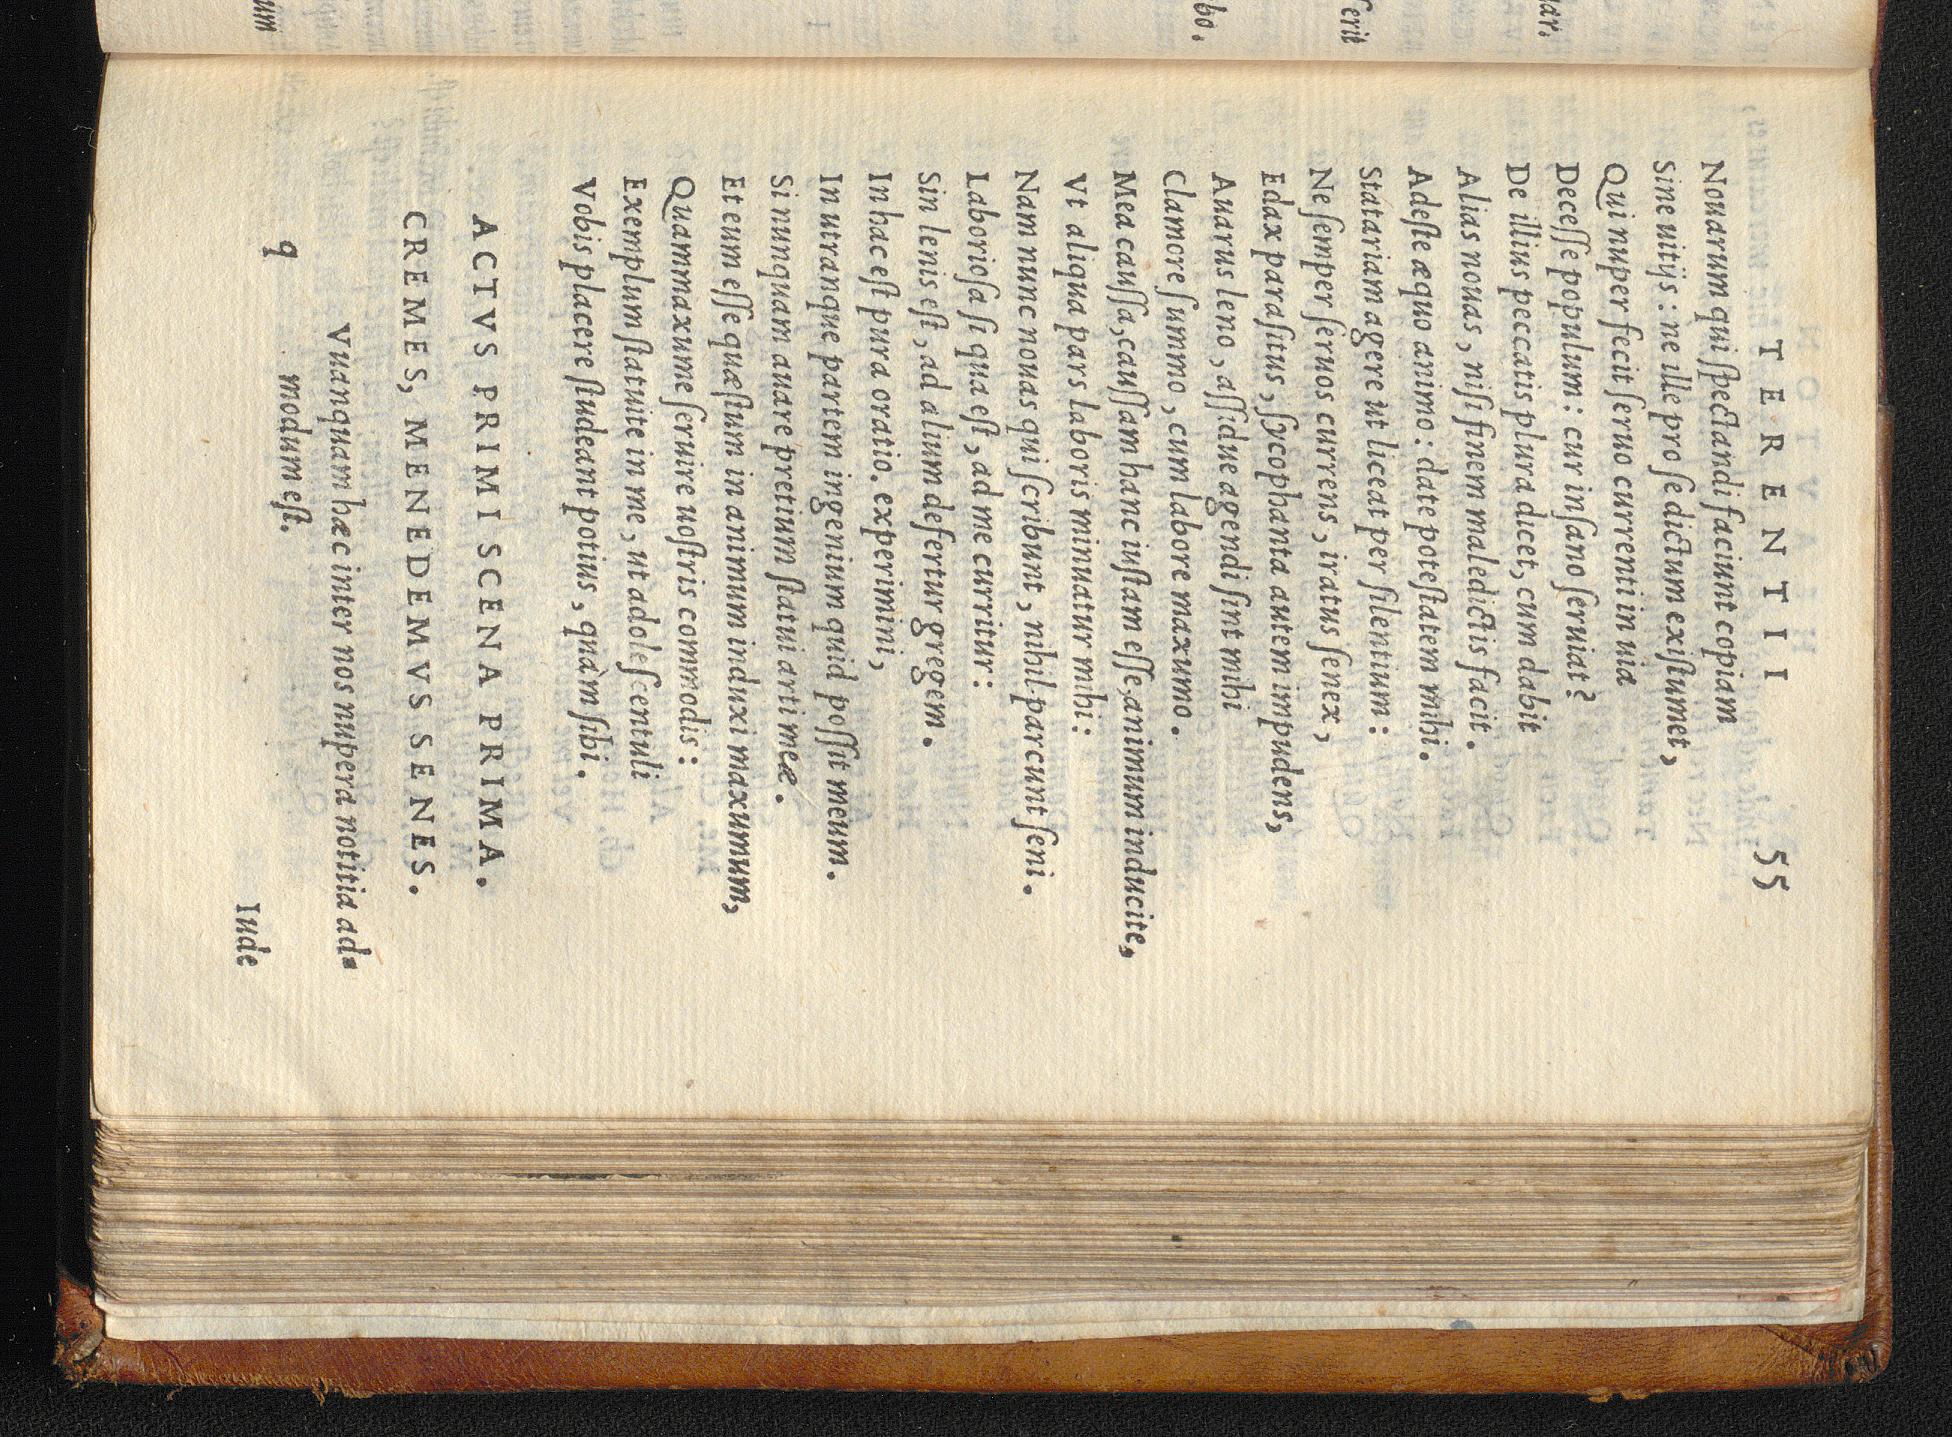 TERENTII 55
Nouarum qui ſpectandi faciunt copiam
Sine uitijs: ne ille pro ſe dictum exiſtumet,
Qui nuper fecit ſeruo currenti in uia
Deceſſe populum: cur inſano ſeruiat?
De illius peccatis plura dicet, cum dabit
Alias nouas, niſi finem maledictis facit.
Adeſte æquo animo: date poteſtatem mihi.
Statariam agere ut liceat per ſilentium:
Ne ſemper ſeruos currens, iratus ſenex,
Edax paraſitus, ſycophanta autem impudens,
Auarus leno, aſſidue agendi ſint mihi
Clamore ſummo, cum labore maxumo.
Mea cauſſa, cauſſam hanc iuſtam eſſe, animum inducite,
Vt aliqua pars laboris minuatur mihi:
Nam nunc nouas qui ſcribunt, nihil parcunt ſeni.
Laborioſa ſi qua eſt, ad me curritur:
Sin lenis eſt, ad alium defertur gregem.
In hac eſt pura oratio. experimini,
In utranque partem ingenium quid poſſit meum.
Si nunquam auare pretium ſtatui arti meæ.
Et eum eſſe quæſtum in animum induxi maxumum,
Quam maxume ſeruire uoſtris commodis:
Exemplum ſtatuite in me, ut adoleſcentuli
Vobis placere ſtudeant potius, quàm ſibi.
ACTVS PRIMI SCENA PRIMA.
CREMES, MENEDEMVS SENES.
Vuanquam hæc inter nos nupera notitia ad-
modum eſt.
q Iude
um
bo.
ſerit
uar.